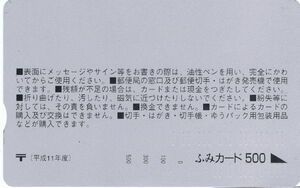 ■表面にメッセージやサイン等をお書きの際は、油性ペンを用い、完全にかわ
いてからご使用ください。■郵便局の窓口及び郵便切手・はがき発売機で使用
できます。■残額が不足の場合は、カードまたは現金をつぎたしてください。
■折り曲げたり、汚したり、磁気に近づけたりしないでください。■紛失等に
対しては、その責を負いません。■換金できません。■カードによるカードの
購入及び交換はできません。■切手・はがき・切手帳・ゆうパック用包装用品
などが購入できます。
〒 (平成11年度) 500 300 100 0 ふみカード500